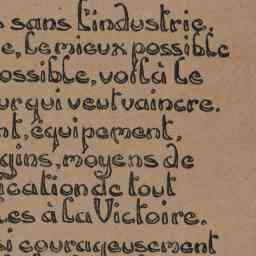 sans l'industrie,
e, le mieux possible
ossible, voilà le
ur qui veut vaincre.
nt, équipement,
gins, moyens de
ication de tout
les à la Victoire.
si courageusement